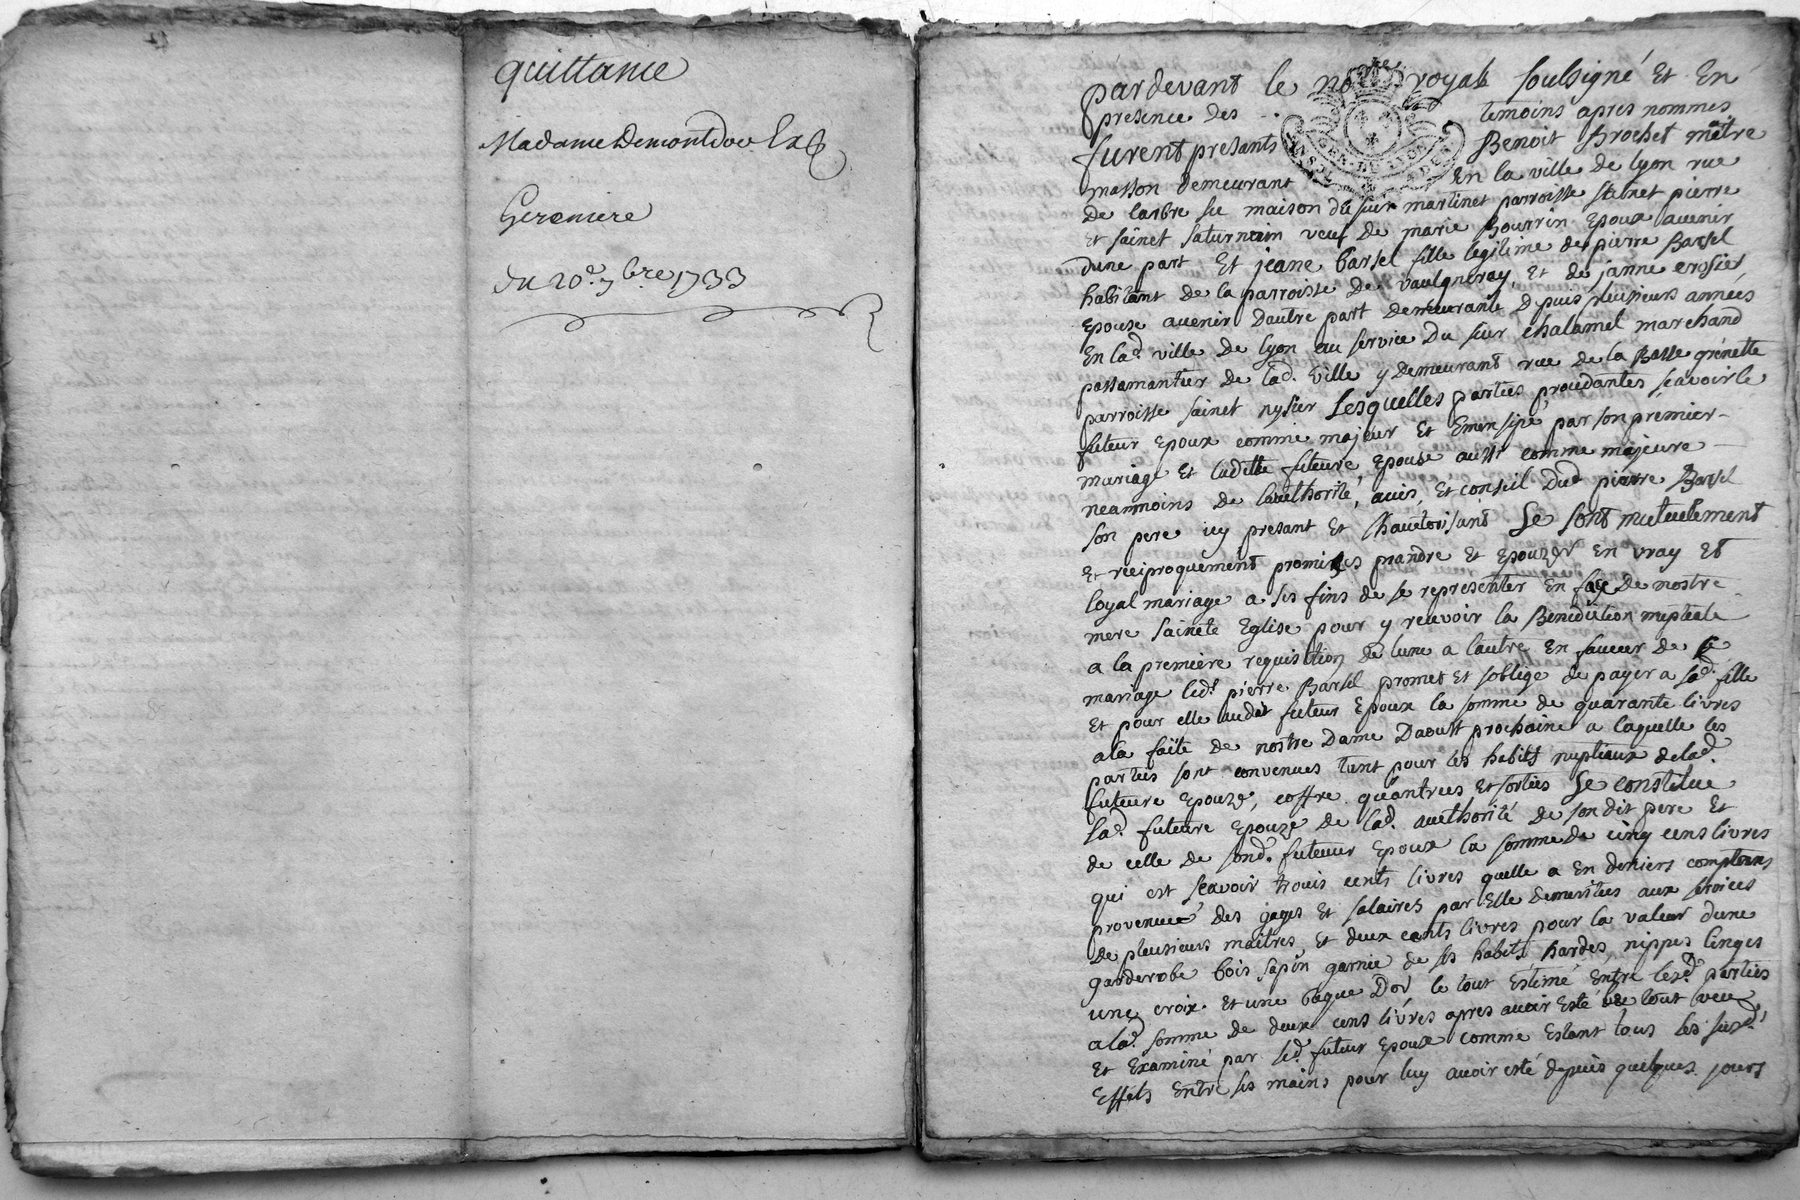 quittance
Madame Demontdor
Geroniere
du 20e 7bre 1733
pardevant le no.re royal soubsigné Et En
presence des temoins apres nommes
furent presants Benoit Brochet mêtre
masson demeurant En la ville de lyon rue
de larbre sec maison du sieur martinet parroisse st pierre
et sainct saturnin veuf de marie Bourrin Epoux avenir
dune part Et jeane barsel fille legitime de pierre Barsel
habitant de la parroisse de vaulgneray, Et de janne crosier
Epouze avenir Dautre part demeurante depuis plusieurs années
En lad. ville de lyon au service Du sieur chalamel marchand
passamantier de lad. ville y demeurant rue de la Basse grenette
parroisse sainct nysier Lesquelles parties procedantes scavoir le
futeur Epoux comme majeur Et Emensipé par son prémier
mariage Et laditte futeure Epouse aussy comme majeure
neanmoins de lauthorité, avis, Et conseil Dud pierre Barsel
son pere icy presant Et Lhautorisant Se sont mutuelement
Et reciproquement promises prandre Et Epouzer En vray Et
loyal mariage a ses fins de se representer En face de nostre
mere saincte Eglise pour y recevoir la Benediction nuptiale
a la première requisition de lune a lautre En faveur de ce
mariage led.t pierre Barsel promet Et soblige de payer a sad. fille
Et pour elle audit futeur Epoux la somme de quarante livres
a la faite de nostre Dame Daoust prochaine a laquelle les
parties sont convenues tant pour les habits nuptiaux de lad.
futeure Epouze, coffre, quantrees Et sorties Se constitue
lad. futeure Epouze de lad. authorité de son dit pere Et
de celle de sond. futeur Epoux la somme de cinq cens livres
qui est scavoir trois cents livres quelle a En deniers comptens
provenue des gages Et salaires par Elle demeritees aux services
de pleusieurs maîtres, Et deux cents livres pour la valeur dune
garderobe bois sapin garnie de ses habits, hardes, nippes linges
une croix Et une bague Dor le tout Estimé Entre lesd. parties
a la somme de deux cens livres apres avoir Esté le tout veu
Et Examiné par led. futeur Epoux comme Estant tous les susd.
Effets Entre ses mains pour luy avoir esté depuis quelques jours